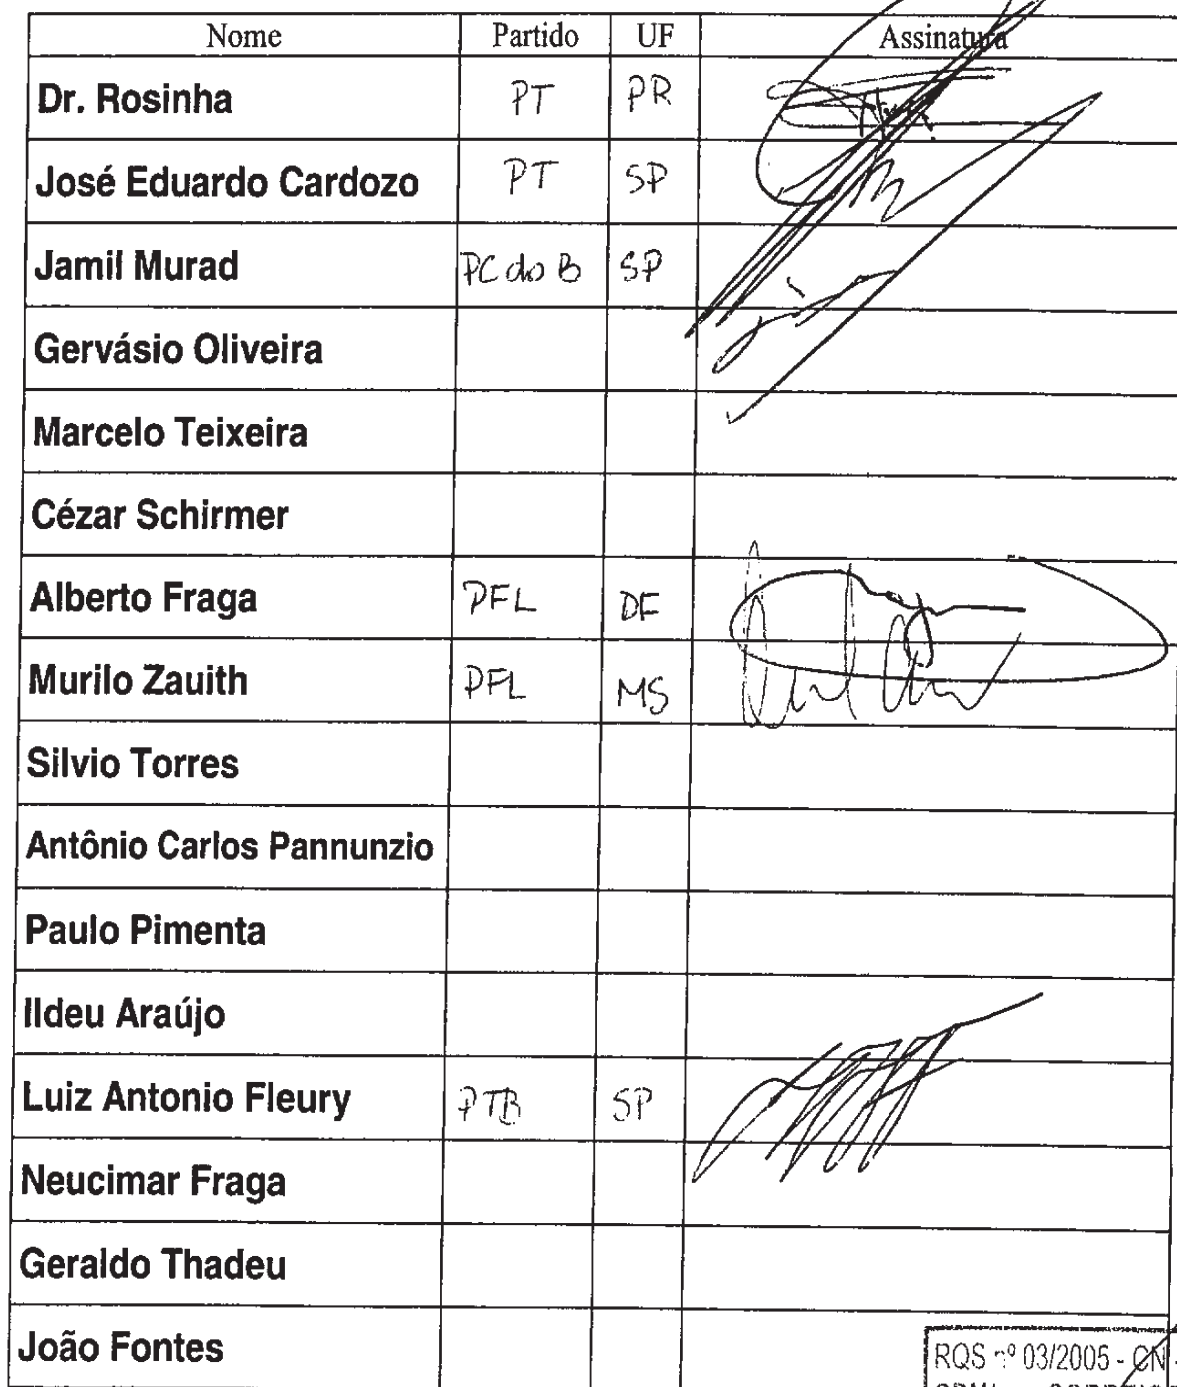 Nome Partido UF Assinatura
Dr. Rosinha PT PR
José Eduardo Cardozo PT SP
Jamil Murad PC do B SP
Gervásio Oliveira
Marcelo Teixeira
Cézar Schirmer
Alberto Fraga PFL DF
Murilo Zauith PFL MS
Silvio Torres
Antônio Carlos Pannunzio
Paulo Pimenta
Ildeu Araújo
Luiz Antonio Fleury PTB SP
Neucimar Fraga
Geraldo Thadeu
João Fontes
RQS nº 03/2005 - CN -